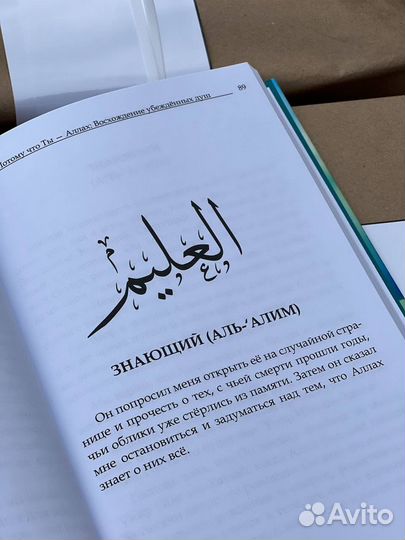 Потому что Ты — Аллах: Восхождение убеждённых душ 89
العليم
ЗНАЮЩИЙ (АЛЬ-‘АЛИМ)
Он попросил меня открыть её на случайной стра-
нице и прочесть о тех, с чьей смерти прошли годы,
чьи облики уже стёрлись из памяти. Затем он сказал
мне остановиться и задуматься над тем, что Аллах
знает о них всё.
Avito